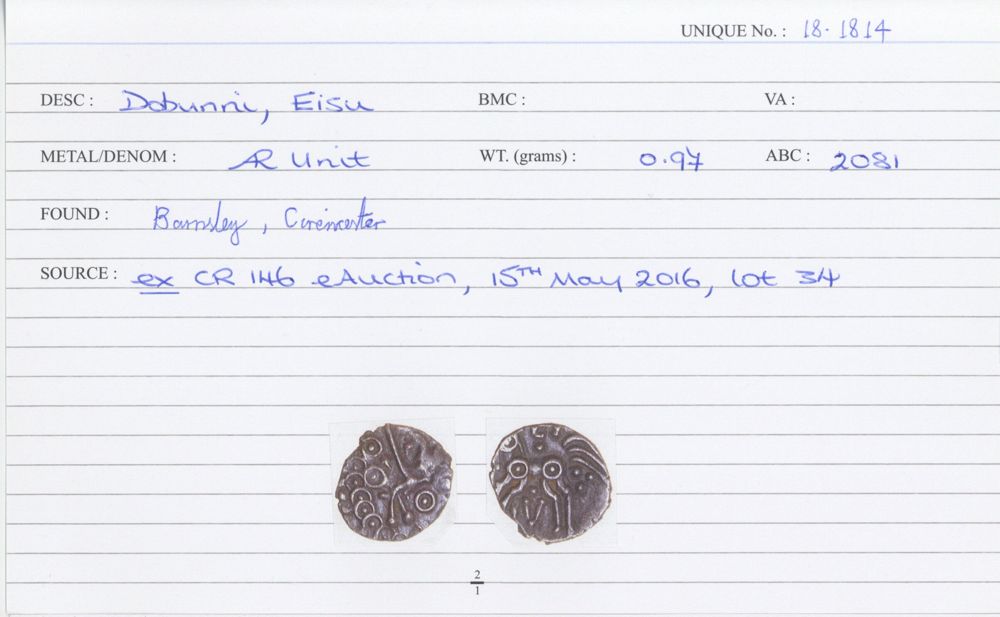 UNIQUE No. : 18.1814
DESC : Dobunni, Eisu BMC : VA :
METAL/DENOM : AR Unit WT. (grams) : 0.97 ABC : 2081
FOUND : Barnsley, Cirencester
SOURCE : ex CR 146 eAuction, 15TH May 2016, lot 34
2
1